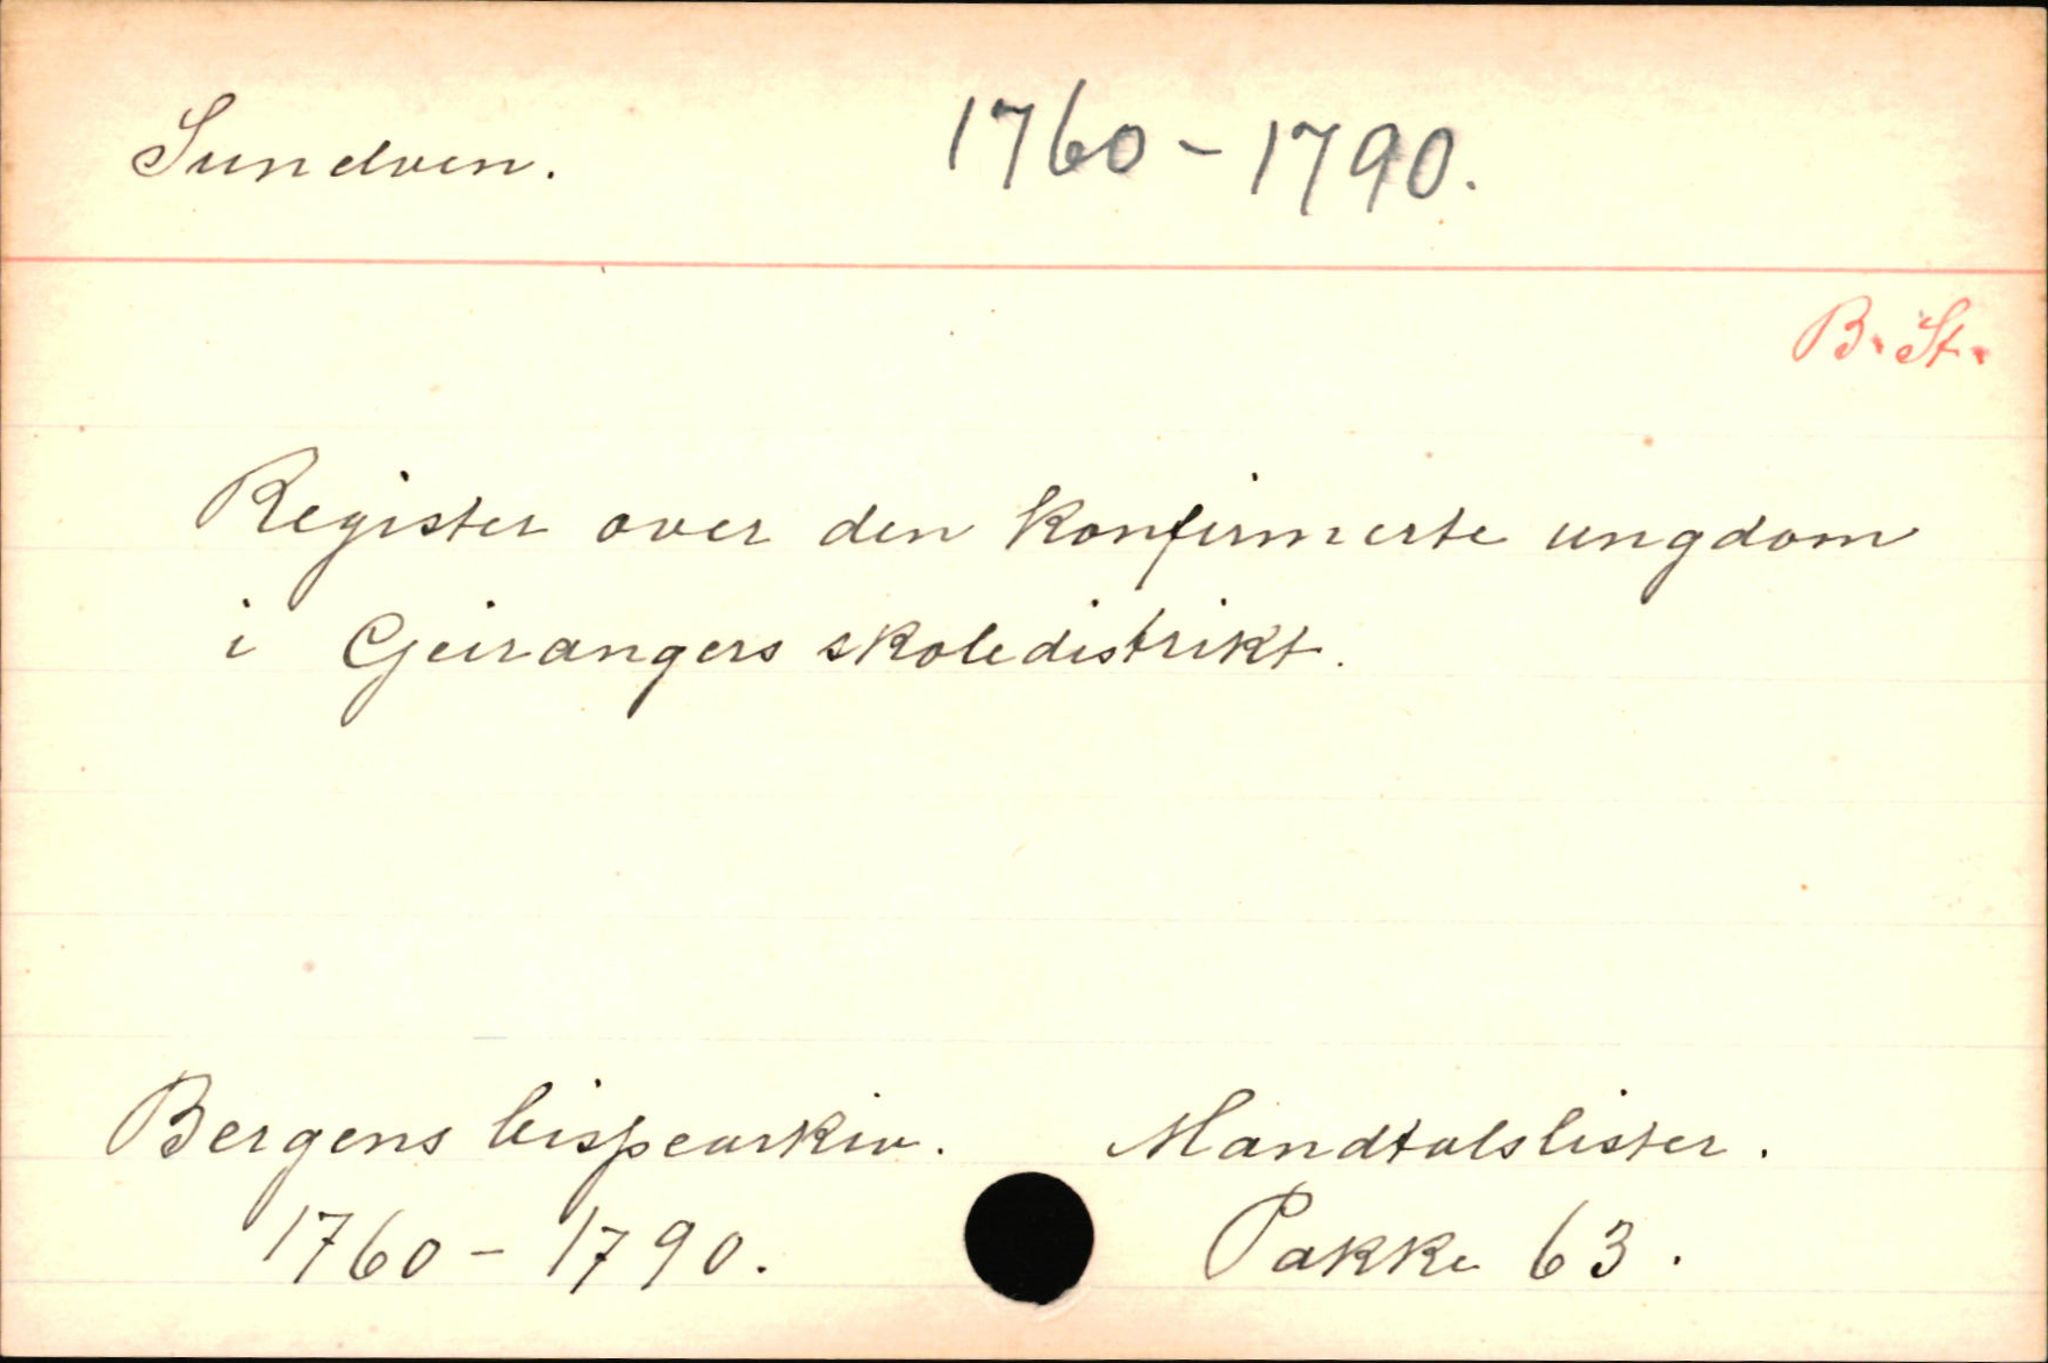 Sundven. 1760-1790.
B. St.
Register over den konfirmerte ungdom
i Geirangers skoledistrikt.
Bergens bispearkiv. Mandtalslister.
1760-1790. Pakke 63.